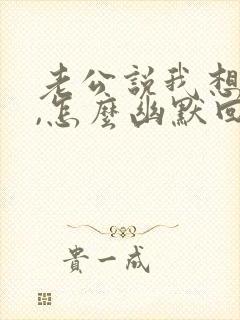 老公説我想
,怎麼幽默回
貴一成